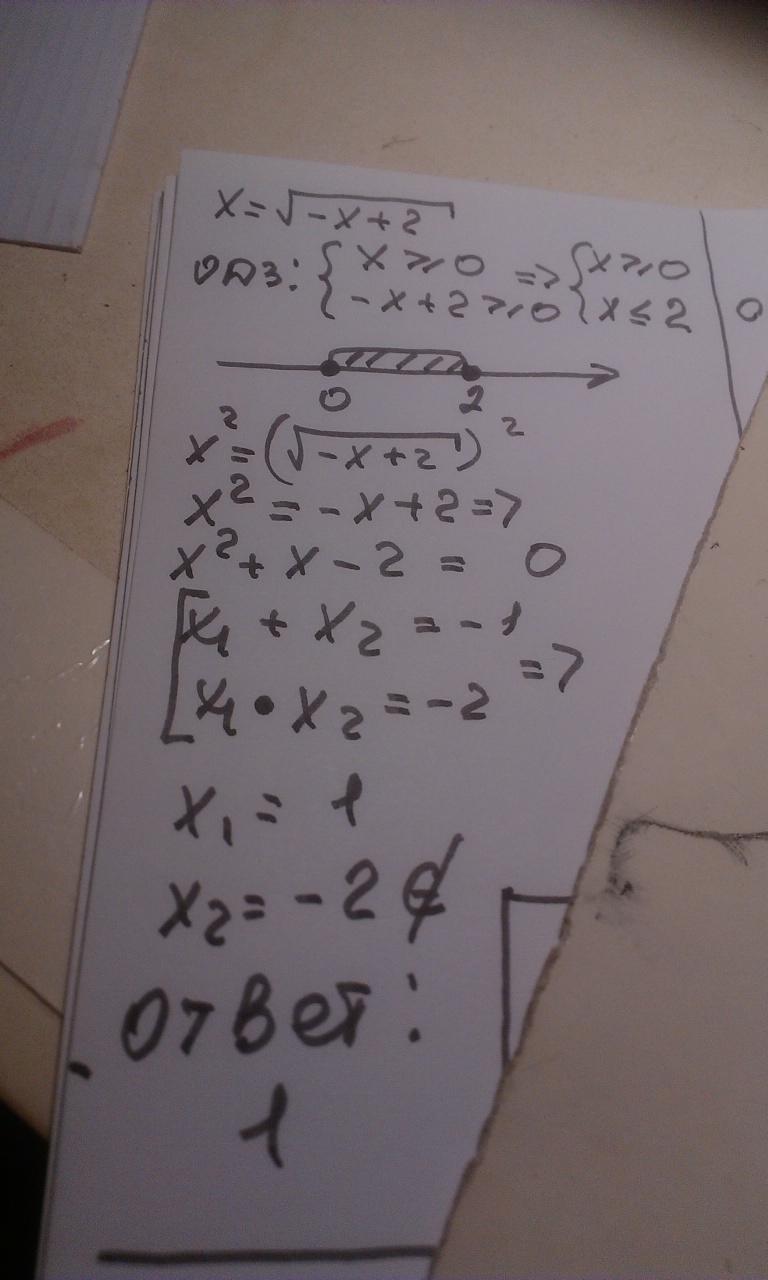 x=√(-x+2)
ОДЗ: { x ⩾ 0 => { x ⩾ 0
{ -x+2 ⩾ 0 { x ≤ 2
0
0 2
x²=(√(-x+2))²
x² = -x+2 =>
x²+x-2 = 0
[ x₁ + x₂ = -1
=>
[ x₁ • x₂ = -2
x₁ = 1
x₂ = -2 ∉
Ответ:
1